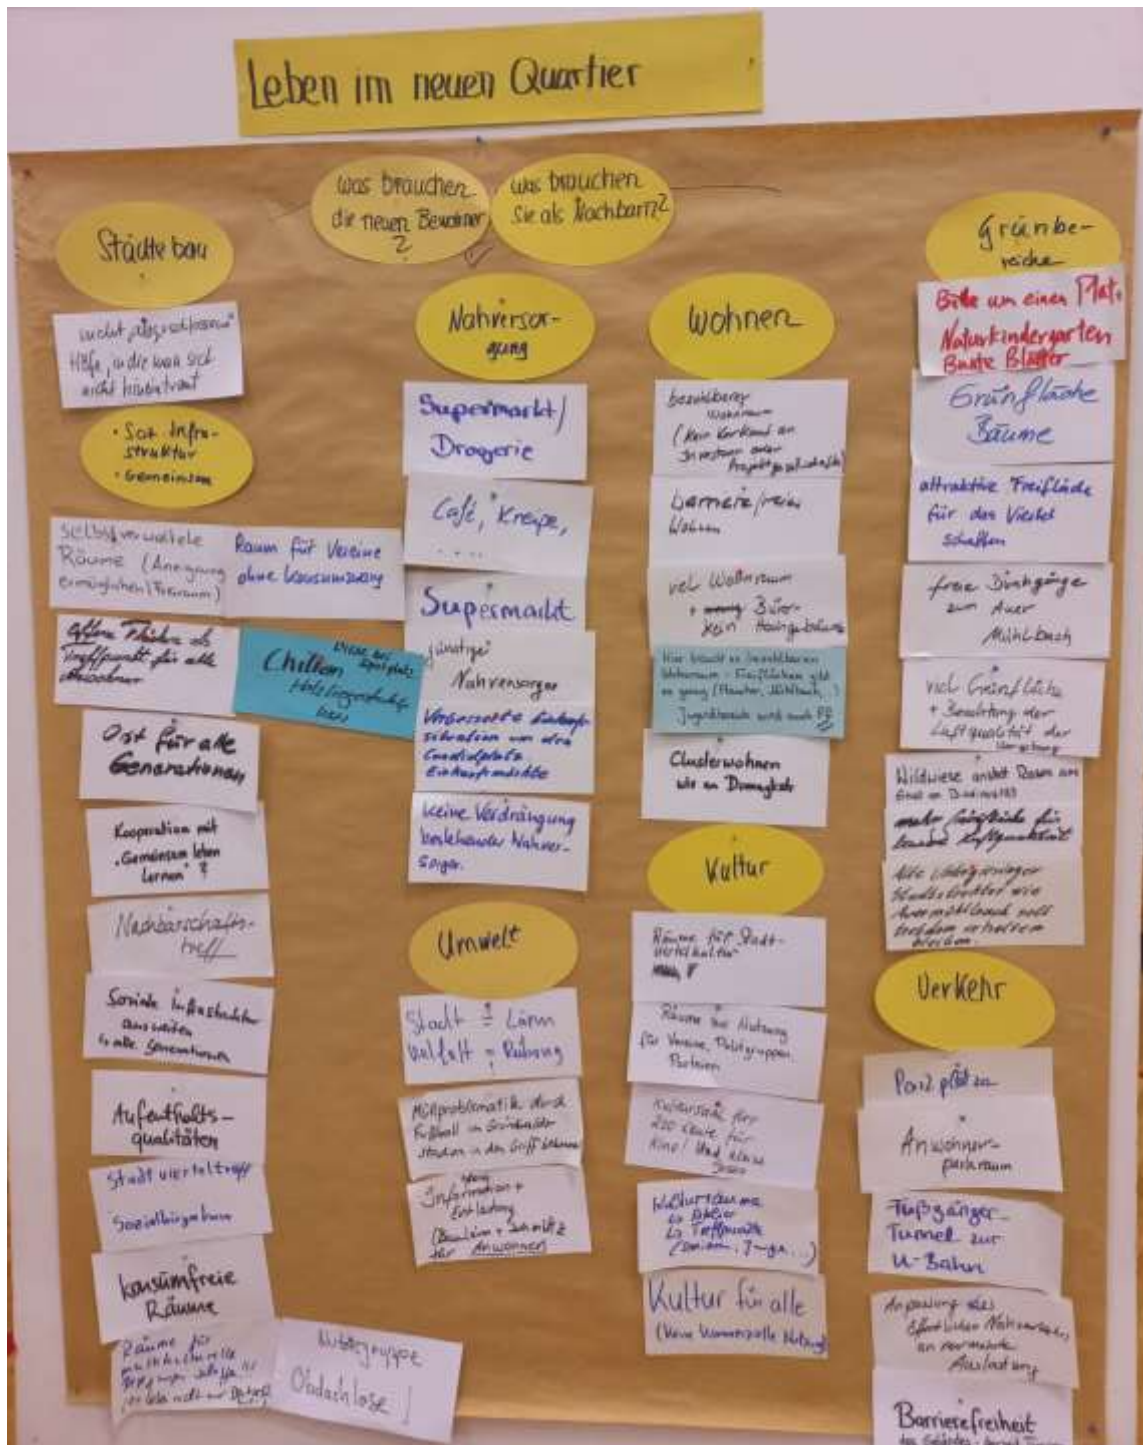 Leben im neuen Quartier
was brauchen
die neuen Bewohner
?
was brauchen
Sie als Nachbarn?
Städtebau
nicht "abgeschlossene"
Höfe, in die man sich
nicht hineintraut
• Soz. Infra-
struktur
• Gemeinsam
selbstverwaltete
Räume (Aneignung
ermöglichen / Freiraum)
Raum für Vereine
ohne Konsumzwang
als
Treffpunkt für alle
Bewohner
Chillen
Ort für alle
Generationen
Kooperation mit
"Gemeinsam leben
lernen" ?
Nachbarschafts-
treff
Soziale Infrastruktur
ausweiten
alle Generationen
Aufenthalts-
qualitäten
Stadtvierteltreff
Sozialbürgerhaus
konsumfreie
Räume
Räume für
multikulturelle
Nutzergruppe
Obdachlose!
Nahversor-
gung
Supermarkt/
Drogerie
Café, Kneipe,
....
Supermarkt
günstiger
Nahversorger
Verbesserte Einkauf-
situation um den
Candidplatz
Einkaufsmöchte
keine Verdrängung
bestehender Nahver-
sorger.
Umwelt
Stadt = Lärm
Vielfalt = Reibung
Müllproblematik durch
Fußball im Grünwalder
Stadion in den Griff bekommen
Information +
Entlastung
(Baulärm + Schmutz
für Anwohner
Wohnen
bezahlbarer
Wohnraum
(Kein Verkauf an
Investoren oder
Projektgesellschaft)
barrierefreies
Wohnen
viel Wohnraum
+ Büro-
kein Hochgebäude
Hier braucht es bezahlbaren
Wohnraum - Freiflächen gibt
es genug (Flaucher, Mühlbach,..)
Clusterwohnen
wie am Domagkstr
Kultur
Räume für Stadt-
viertelkultur
Räume zur Nutzung
für Vereine, Politgruppen,
Parteien
Kultursaal für
200 Leute für
Kino! Und
Kulturräume
↳ Atelier
↳ Treffpunkte
Kultur für alle
(keine kommerzielle Nutzung)
Grünbe-
reiche
Bitte um einen Platz
Naturkindergarten
Bunte Blätter
Grünfläche
Bäume
attraktive Freifläche
für das Viertel
schaffen
freie Durchgänge
zum Auer
Mühlbach
viel Grünfläche
+ Beachtung der
Luftqualität der
Umgebung
Wildwiese anstatt Rasen am
mehr Grünfläche für
bessere Luftqualität
Auermühlbach soll
trotzdem erhalten
bleiben.
Verkehr
Parkplätze
Anwohner-
parkraum
Fußgänger-
Tunnel zur
U-Bahn
Anpassung des
öffentlichen Nahverkehrs
an vermehrte
Auslastung
Barrierefreiheit